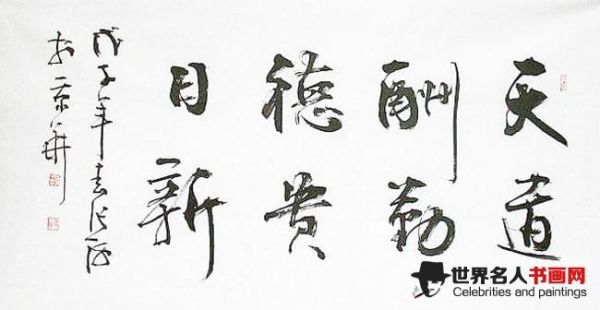 天道
酬勤
德贵
日新
戊子年
于京華
世界名人书画网
Celebrities and paintings